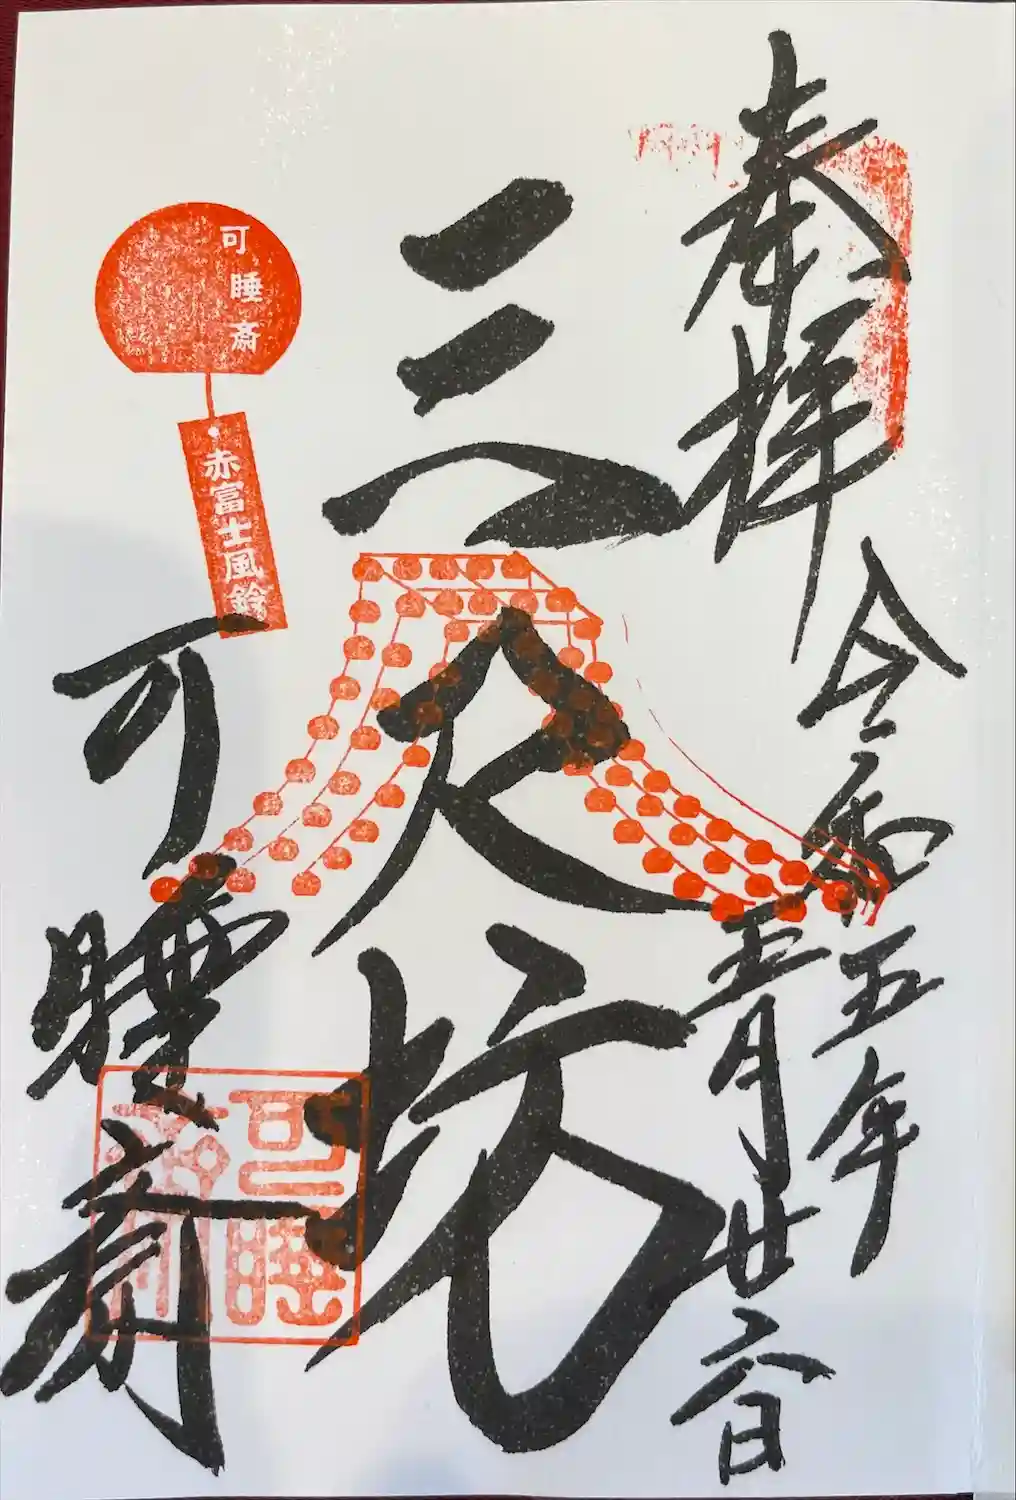 奉拝
令和五年
五月廿六日
三尺坊
可睡斎
可睡斎
赤富士風鈴
可睡
斎